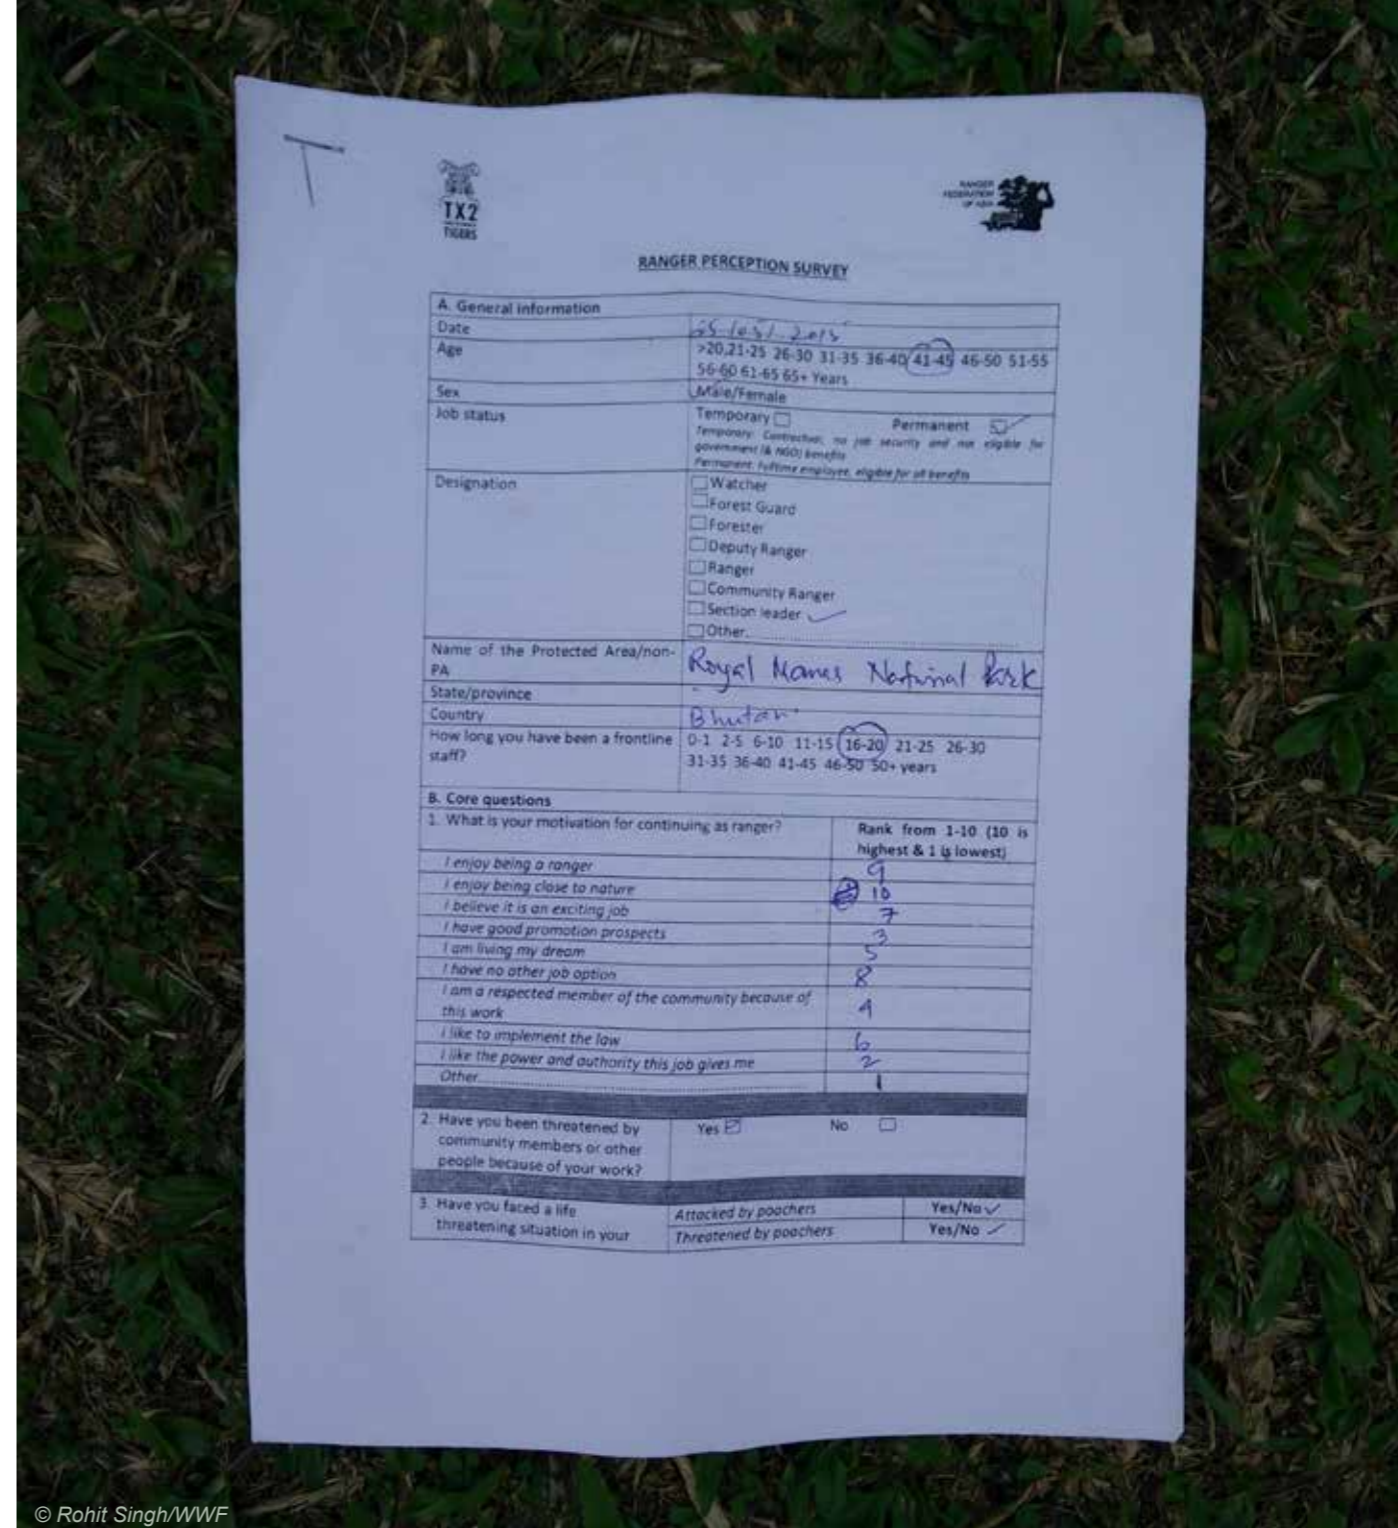 TX2
TIGERS
RANGER
FEDERATION
OF ASIA
RANGER PERCEPTION SURVEY
A. General information
Date
Age >20,21-25 26-30 31-35 36-40 41-45 46-50 51-55
56-60 61-65 65+ Years
Sex Male/Female
Job status Temporary Permanent
Temporary: Contractual, no job security and not eligible for
government (& NGO) benefits
Permanent: Fulltime employee, eligible for all benefits
Designation Watcher
Forest Guard
Forester
Deputy Ranger
Ranger
Community Ranger
Section leader
Other
Name of the Protected Area/non-
PA Royal Manas National Park
State/province
Country Bhutan
How long you have been a frontline 0-1 2-5 6-10 11-15 16-20 21-25 26-30
staff? 31-35 36-40 41-45 46-50 50+ years
B. Core questions
1. What is your motivation for continuing as ranger? Rank from 1-10 (10 is
highest & 1 is lowest)
I enjoy being a ranger 9
I enjoy being close to nature 10
I believe it is an exciting job 7
I have good promotion prospects 3
I am living my dream 5
I have no other job option 8
I am a respected member of the community because of
this work 4
I like to implement the law 6
I like the power and authority this job gives me 2
Other 1
2. Have you been threatened by Yes No
community members or other
people because of your work?
3. Have you faced a life Attacked by poachers Yes/No
threatening situation in your Threatened by poachers Yes/No
© Rohit Singh/WWF